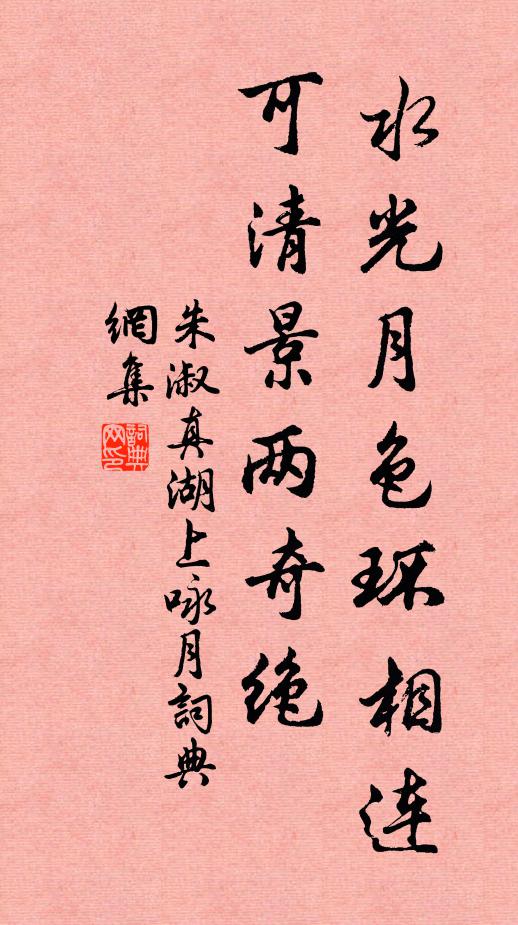 水光月色环相连
可清景两奇绝
朱淑真湖上咏月詞典
網集
詞典網印